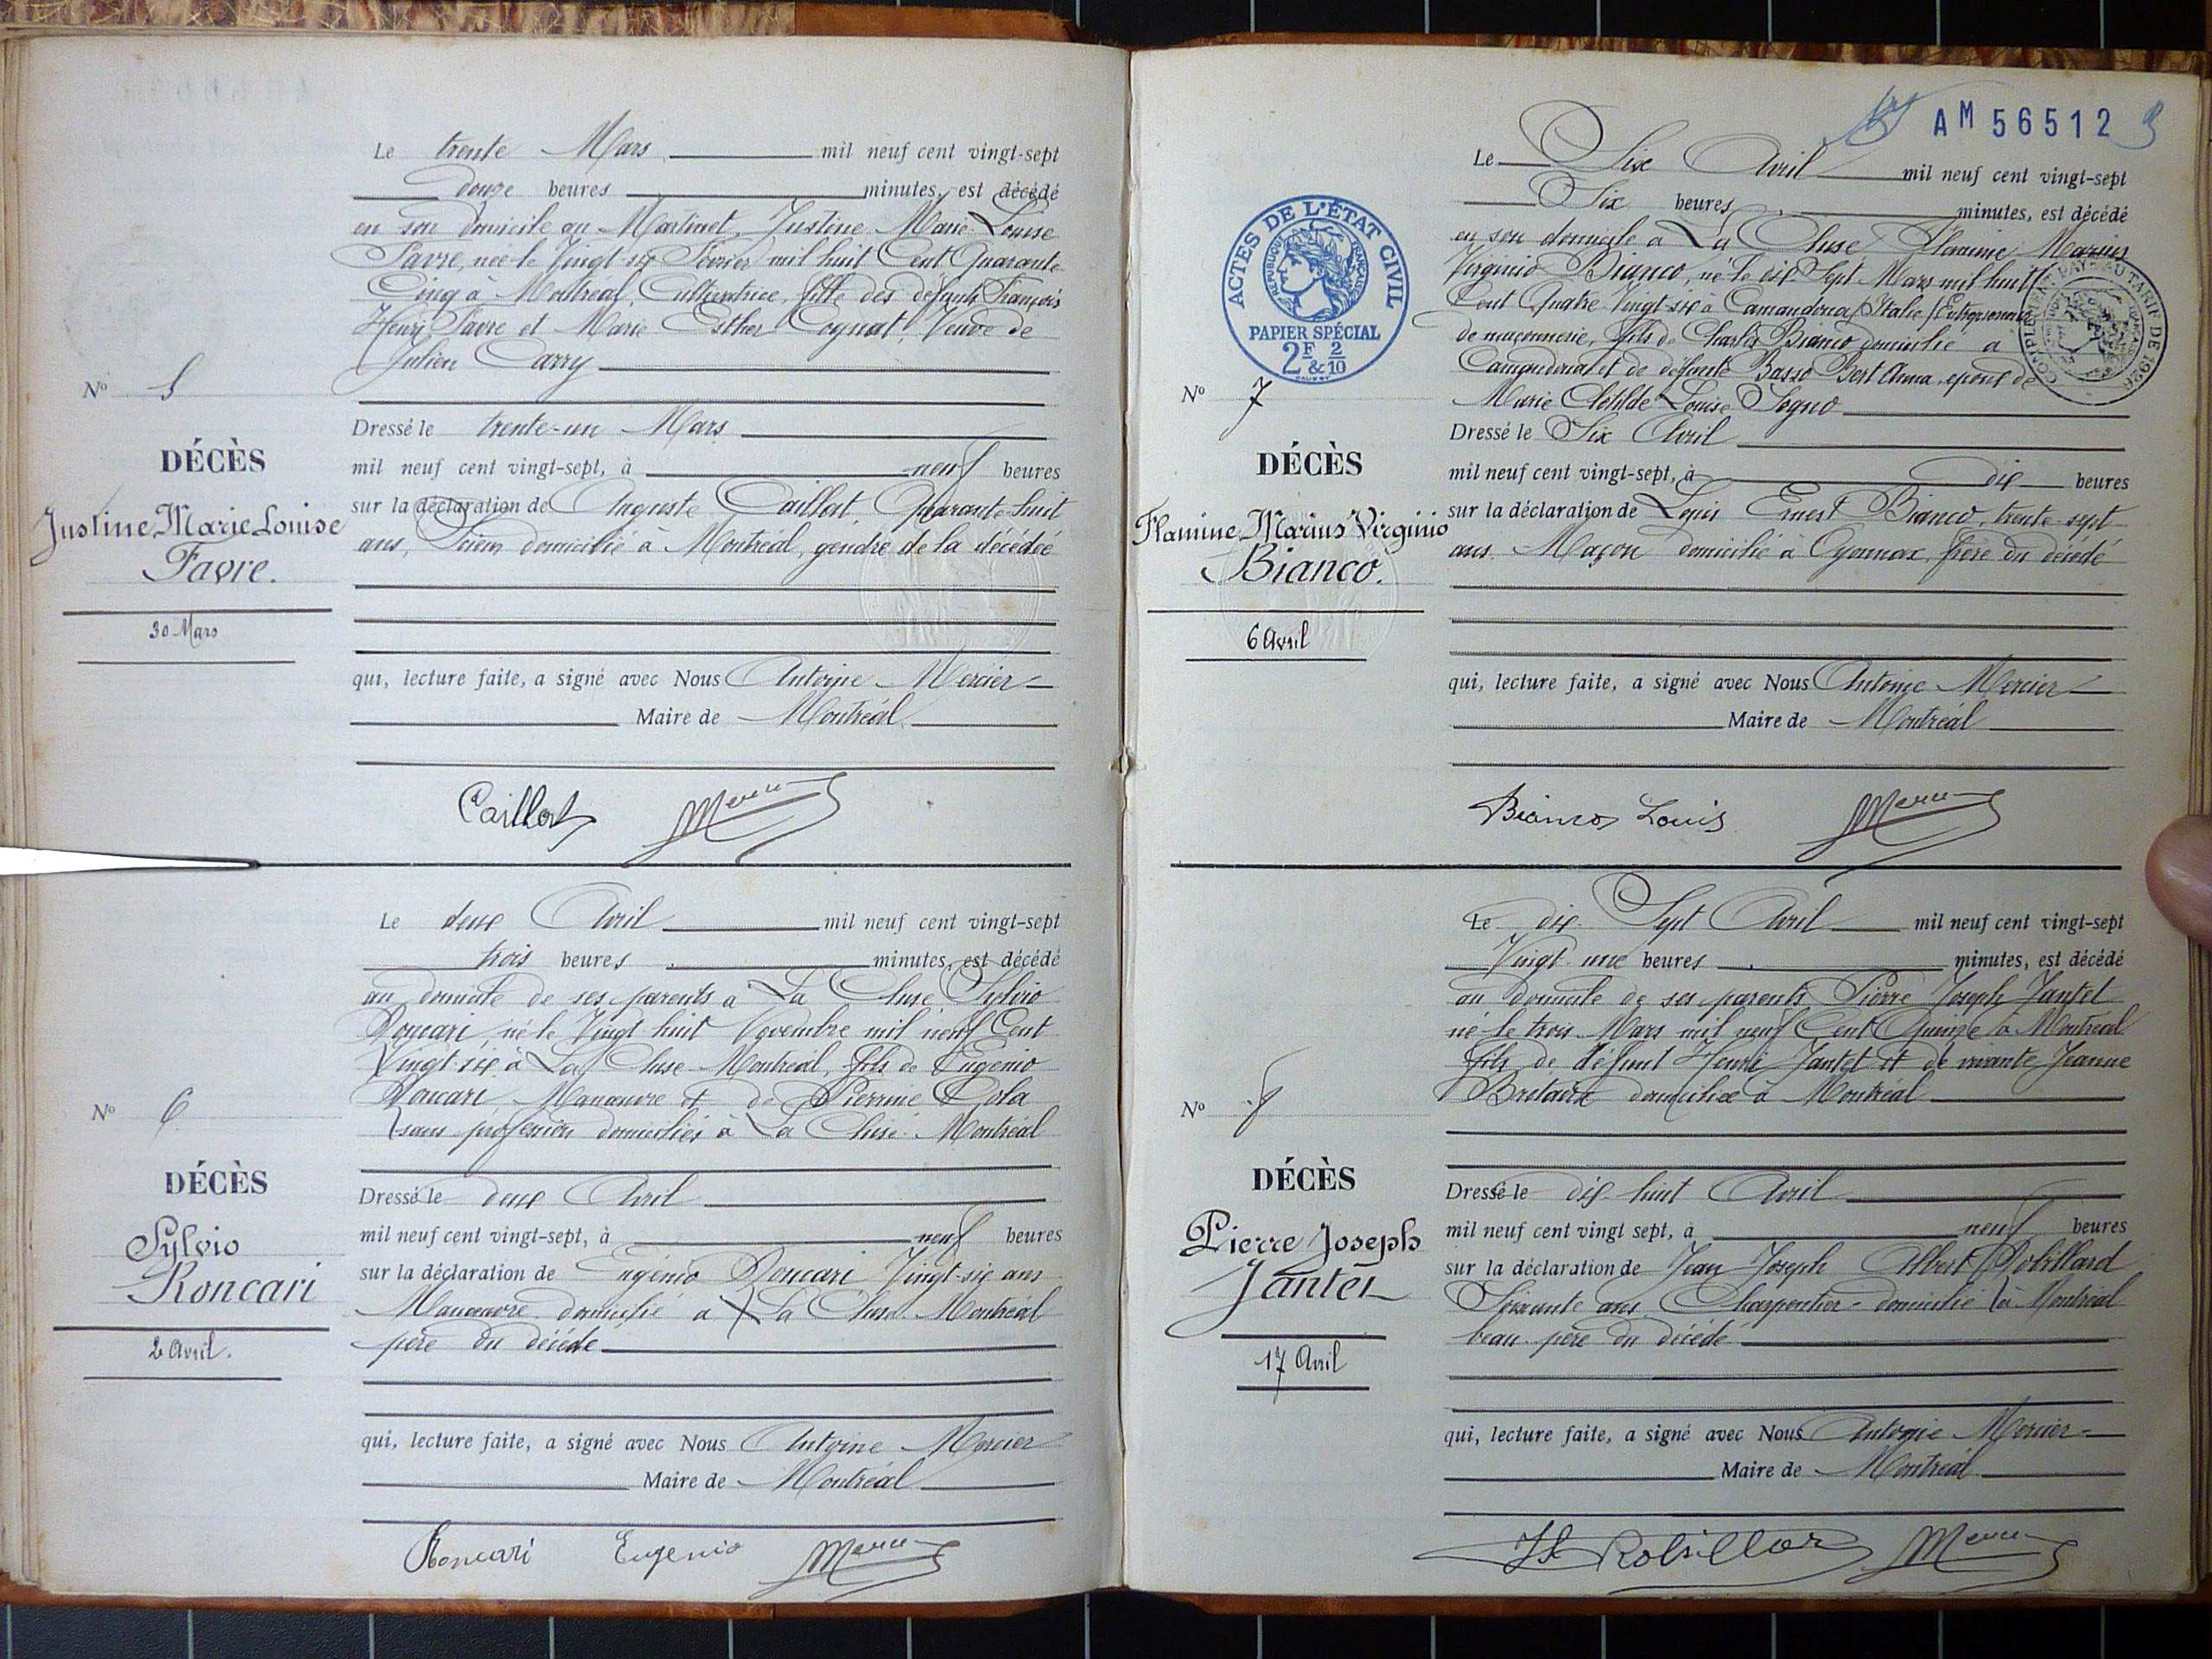 Le trente Mars mil neuf cent vingt-sept
douze heures minutes, est décédé
en son domicile au Martinet, Justine Marie Louise
Favre, née le Vingt six Février mil huit Cent Quarante
Cinq à Montréal, Cultivatrice, fille des défunts François
Henri Favre et Marie Esther Cognat, Veuve de
Julien Carry
Nº 5
DÉCÈS
Justine Marie Louise
Favre.
30 Mars
Dressé le trente-un Mars
mil neuf cent vingt-sept, à neuf heures
sur la déclaration de Auguste Caillat, Quarante huit
ans, domicilié à Montréal, gendre de la décédée
qui, lecture faite, a signé avec Nous Antoine Mercier
Maire de Montréal
Caillat
Le deux Avril mil neuf cent vingt-sept
trois heures minutes, est décédé
au domicile de ses parents à La Cluse Sylvio
Roncari, né le Vingt huit Novembre mil neuf Cent
Vingt-six à La Cluse-Montréal, fils de Eugenio
Roncari, Manœuvre et de Pierrine Cola
sans profession domiciliés à La Cluse-Montréal
Nº 6
DÉCÈS
Sylvio
Roncari
2 Avril.
Dressé le deux Avril
mil neuf cent vingt-sept, à neuf heures
sur la déclaration de Eugénio Roncari Vingt-six ans
Manœuvre domicilié à La Cluse Montréal
père du décédé
qui, lecture faite, a signé avec Nous Antoine Mercier
Maire de Montréal
Roncari Eugenio
AM 56512
ACTES DE L'ÉTAT CIVIL
RÉPUBLIQUE FRANÇAISE
PAPIER SPÉCIAL
2F & 2/10
COMPLÉMENT PAYÉ AU TARIF DE 1926
Le Six Avril mil neuf cent vingt-sept
Six heures minutes, est décédé
en son domicile à La Cluse, Flamine Marius
Virginio Bianco, né le dix-Sept Mars mil huit
Cent Quatre-Vingt-six à Camandona (Italie) Entrepreneur
de maçonnerie, fils de Charles Bianco domicilié à
Camandona et de défunte Basso Bert Anna, époux de
Marie Clotilde Louise Sogno
Nº 7
DÉCÈS
Flamine Marius Virginio
Bianco.
6 Avril
Dressé le Six Avril
mil neuf cent vingt-sept, à dix heures
sur la déclaration de Louis Ernest Bianco, trente-sept
ans Maçon domicilié à Oyonnax, frère du décédé
qui, lecture faite, a signé avec Nous Antoine Mercier
Maire de Montréal
Bianco Louis
Le dix Sept Avril mil neuf cent vingt-sept
Vingt une heures minutes, est décédé
au domicile de ses parents Pierre Joseph Jantet
né le trois Mars mil neuf Cent Quinze à Montréal
fils de défunt Henri Jantet et de vivante Jeanne
domiciliée à Montréal
Nº 8
DÉCÈS
Pierre Joseph
Jantet
17 Avril
Dressé le dix huit Avril
mil neuf cent vingt sept, à neuf heures
sur la déclaration de Jean Joseph Albert Robillard
Soixante ans Charpentier domicilié à Montréal
beau-père du décédé
qui, lecture faite, a signé avec Nous Antoine Mercier
Maire de Montréal